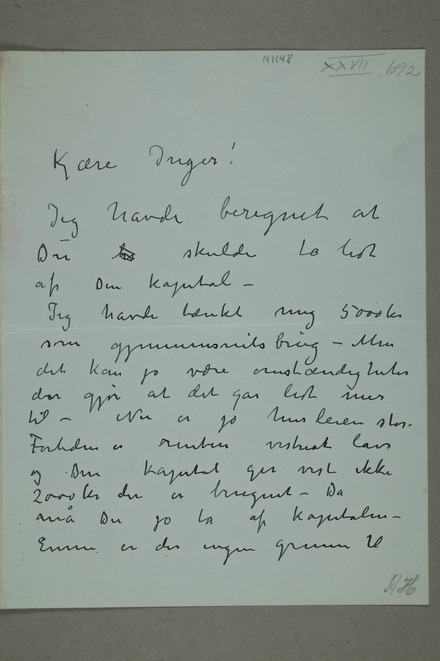 N1148
XXVII 692
Kjære Inger!
Jeg havde beregnet at
Du skulde ta lidt
af Din Kapital –
Jeg havde tænkt mig 5000 kr
som gjennemsnitsbrug – Men
det kan jo være omstændigheter
der gjør at det går lidt mer
til – Nu er jo husleien stor.
Fortiden er renten vistnok lav
og Din Kapital gir vist ikke
2000 kr der er beregnet – Da
må Du jo ta af Kapitalen –
er der ingen grunn til